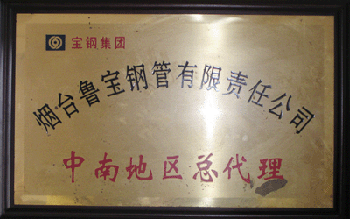 宝钢集团
烟台鲁宝钢管有限责任公司
中南地区总代理